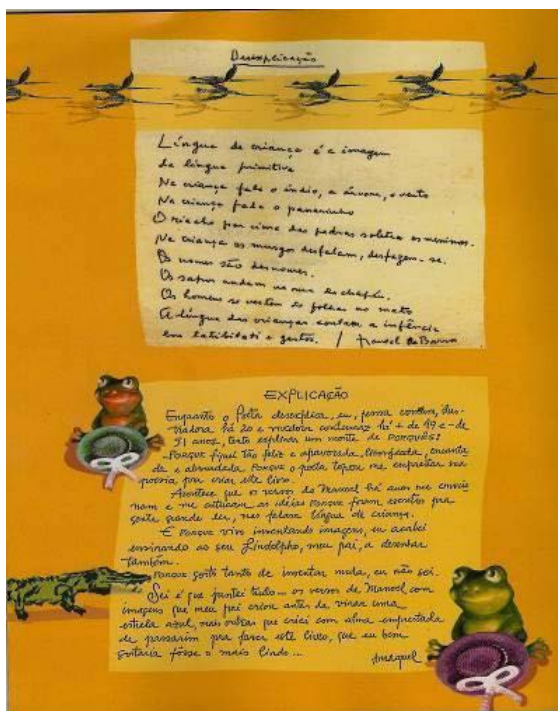 Desexplicação
Língua de criança é a imagem
da língua primitiva
Na criança fala o índio, a árvore, o vento
Na criança fala o passarinho
O riacho por cima das pedras soletra os meninos.
Na criança os musgos desfalam, desfazem-se.
Os nomes são desnomes.
Os sapos andam na rua de chapéu.
Os homens se vestem de folhas no mato
A língua das crianças contam a infância
em tatibitati e gestos. / Manoel de Barros
EXPLICAÇÃO
Enquanto o Poeta desexplica, eu, pessoa comum, ilus-
tradora há 20 e há + de 49 e - de
51 anos, tento explicar um monte de PORQUÊS:
-Porque fiquei tão feliz e apavorada, lisonjeada, encanta
da e abismada. Porque o poeta topou me emprestar sua
poesia pra criar este livro.
Acontece que os versos do Manoel há anos me
nam e me as idéias porque foram escritos pra
gente grande ler, na falare língua de criança.
E porque vivo inventando imagens, eu acabei
ensinando ao seu Lindolpho, meu pai, a desenhar
também.
Porque gosto tanto de inventar moda, eu não sei.
Sei é que juntei tudo... os versos de Manoel com
imagens que meu pai criou antes de virar uma
estrela azul, mais outras que criei com alma emprestada
de passarim pra fazer este livro, que eu bem
gostaria fôsse o mais lindo...